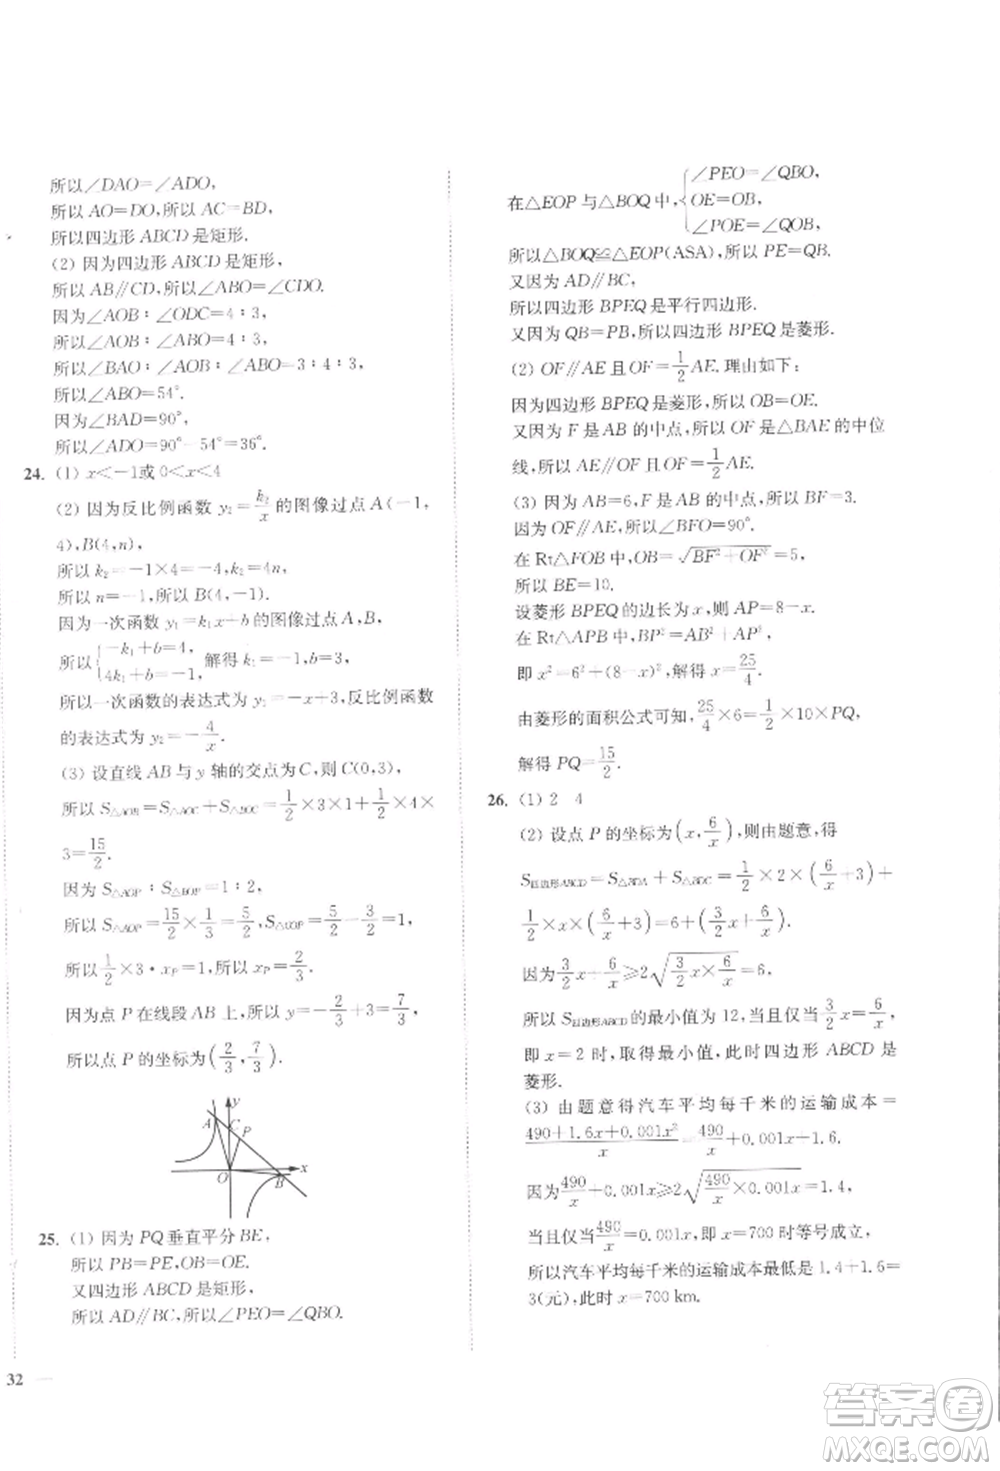 所以∠DAO=∠ADO,
所以 AO=DO,所以 AC=BD,
所以四边形 ABCD 是矩形.
(2) 因为四边形 ABCD 是矩形,
所以 AB∥CD,所以∠ABO=∠CDO.
因为∠AOB∶∠ODC=4∶3,
所以∠AOB∶∠ABO=4∶3,
所以∠BAO∶∠AOB∶∠ABO=3∶4∶3,
所以∠ABO=54°.
因为∠BAD=90°,
所以∠ADO=90°-54°=36°.
24. (1) x<-1或0<x<4
(2) 因为反比例函数 y₂=k₂/x 的图像过点 A(-1,
4),B(4,n),
所以 k₂=-1×4=-4,k₂=4n,
所以 n=-1,所以 B(4,-1).
因为一次函数 y₁=k₁x+b 的图像过点 A,B,
所以{-k₁+b=4, 4k₁+b=-1, 解得 k₁=-1,b=3,
所以一次函数的表达式为 y₁=-x+3,反比例函数
的表达式为 y₂=-4/x.
(3) 设直线 AB 与 y 轴的交点为C,则 C(0,3),
所以 S△AOB=S△AOC+S△BOC=1/2×3×1+1/2×4×
3=15/2.
因为 S△AOP∶S△BOP=1∶2,
所以 S△AOP=15/2×1/3=5/2,S△COP=5/2-3/2=1,
所以1/2×3·xP=1,所以 xP=2/3.
因为点 P 在线段 AB 上,所以 y=-2/3+3=7/3,
所以点 P 的坐标为(2/3,7/3).
y
A
C
P
O
B
x
25. (1) 因为 PQ 垂直平分 BE,
所以 PB=PE,OB=OE.
又四边形 ABCD 是矩形,
所以 AD∥BC,所以∠PEO=∠QBO.
32
在△EOP 与△BOQ 中,{∠PEO=∠QBO, OE=OB, ∠POE=∠QOB,
所以△BOQ≌△EOP(ASA),所以 PE=QB.
又因为 AD∥BC,
所以四边形 BPEQ 是平行四边形.
又因为 QB=PB,所以四边形 BPEQ是菱形.
(2) OF∥AE 且 OF=1/2AE.理由如下:
因为四边形 BPEQ 是菱形,所以 OB=OE.
又因为 F 是 AB 的中点,所以 OF 是△BAE 的中位
线,所以 AE∥OF 且 OF=1/2AE.
(3) 因为 AB=6,F 是 AB 的中点,所以 BF=3.
因为 OF∥AE,所以∠BFO=90°.
在 Rt△FOB 中,OB=√(BF²+OF²)=5,
所以 BE=10.
设菱形 BPEQ 的边长为 x,则 AP=8-x.
在 Rt△APB 中,BP²=AB²+AP²,
即 x²=6²+(8-x)²,解得 x=25/4.
由菱形的面积公式可知,25/4×6=1/2×10×PQ,
解得 PQ=15/2.
26. (1) 2 4
(2) 设点 P 的坐标为(x,6/x),则由题意,得
S四边形ABCD=S△BDA+S△BDC=1/2×2×(6/x+3)+
1/2×x×(6/x+3)=6+(3/2x+6/x).
因为3/2x+6/x≥2√(3/2x×6/x)=6,
所以 S四边形ABCD的最小值为 12,当且仅当3/2x=6/x,
即 x=2 时,取得最小值,此时四边形 ABCD 是
菱形.
(3) 由题意得汽车平均每千米的运输成本=
(490+1.6x+0.001x²)/x=490/x+0.001x+1.6.
因为490/x+0.001x≥2√(490/x×0.001x)=1.4,
当且仅当490/x=0.001x,即 x=700 时等号成立,
所以汽车平均每千米的运输成本最低是 1.4+1.6=
3(元),此时 x=700 km.
答案卷
MXQE.COM